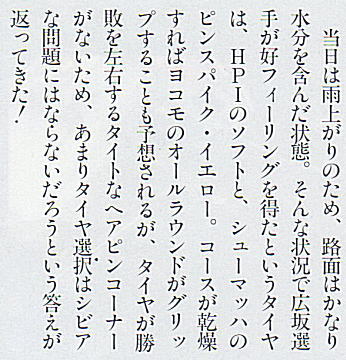 当日は雨上がりのため、路面はかなり
水分を含んだ状態。そんな状況で広坂選
手が好フィーリングを得たというタイヤ
は、HPIのソフトと、シューマッハの
ピンスパイク・イエロー。コースが乾燥
すればヨコモのオールラウンドがグリッ
プすることも予想されるが、タイヤが勝
敗を左右するタイトなヘアピンコーナー
がないため、あまりタイヤ選択はシビア
な問題にはならないだろうという答えが
返ってきた！